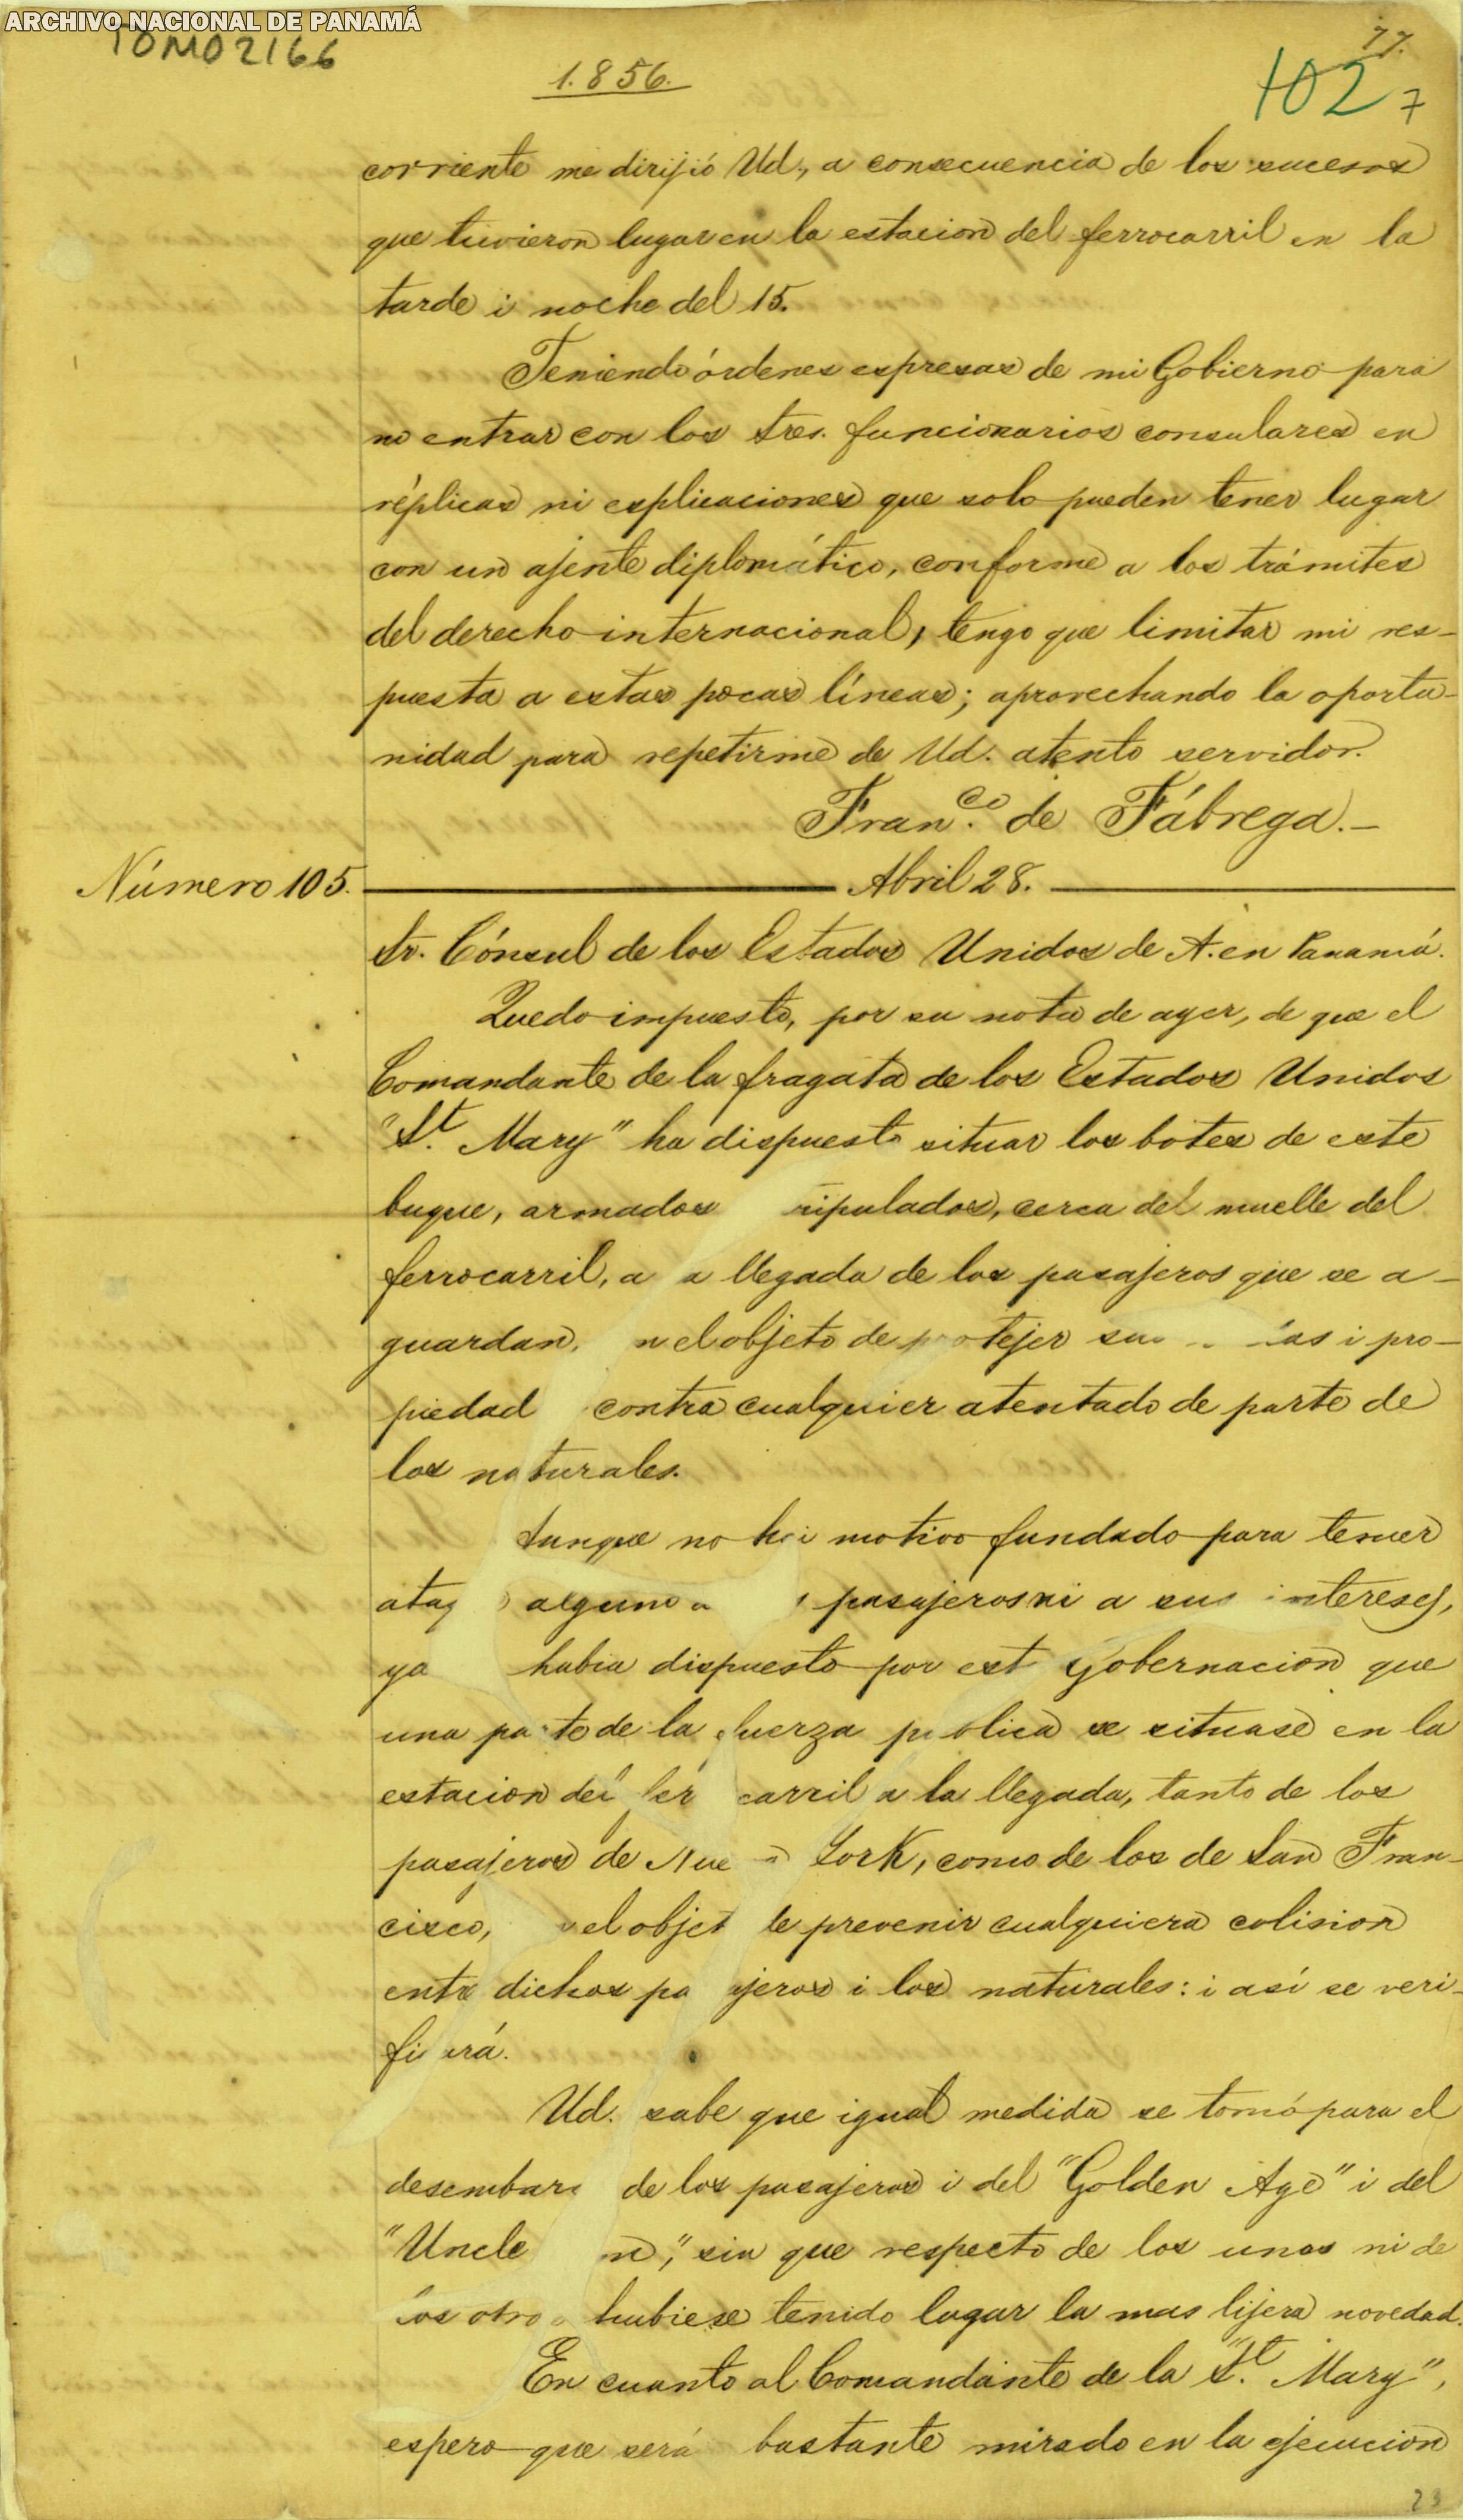 ARCHIVO NACIONAL DE PANAMÁ
TOMO 2166
77.
1.856.
102 7
corriente me dirijió Ud., a consecuencia de los sucesos
que tuvieron lugar en la estacion del ferrocarril en la
tarde i noche del 15.
Teniendo órdenes espresas de mi Gobierno para
no entrar con los Sres. funcionarios consulares en
réplicas ni esplicaciones que solo pueden tener lugar
con un ajente diplomático, conforme a los trámites
del derecho internacional, tengo que limitar mi res-
puesta a estas pocas líneas; aprovechando la oportu-
nidad para repetirme de Ud. atento servidor.
Fran.co de Fábrega.-
Número 105. Abril 28.
Sr. Cónsul de los Estados Unidos de A. en Panamá.
Quedo impuesto, por su nota de ayer, de que el
Comandante de la fragata de los Estados Unidos
"St. Mary" ha dispuesto situar los botes de este
buque, armados ripulados, cerca del muelle del
ferrocarril, a a llegada de los pasajeros que se a-
guardan, n el objeto de protejer sus as i pro-
piedad contra cualquier atentado de parte de
los naturales.
Aunque no hai motivo fundado para temer
ataq o alguno a pasajeros ni a sus intereses,
ya habia dispuesto por est Gobernacion que
una parte de la fuerza publica se situase en la
estacion del fer carril a la llegada, tanto de los
pasajeros de Nue a York, como de los de San Fran-
cisco, n el objet de prevenir cualquiera colision
entre dichos pa ajeros i los naturales: i así se veri-
fi ará.
Ud. sabe que igual medida se tomó para el
desembarc de los pasajeros i del "Golden Age" i del
"Uncle m", sin que respecto de los unos ni de
los otros hubiese tenido lugar la mas lijera novedad.
En cuanto al Comandante de la "St. Mary",
espero que será bastante mirado en la ejecucion
23